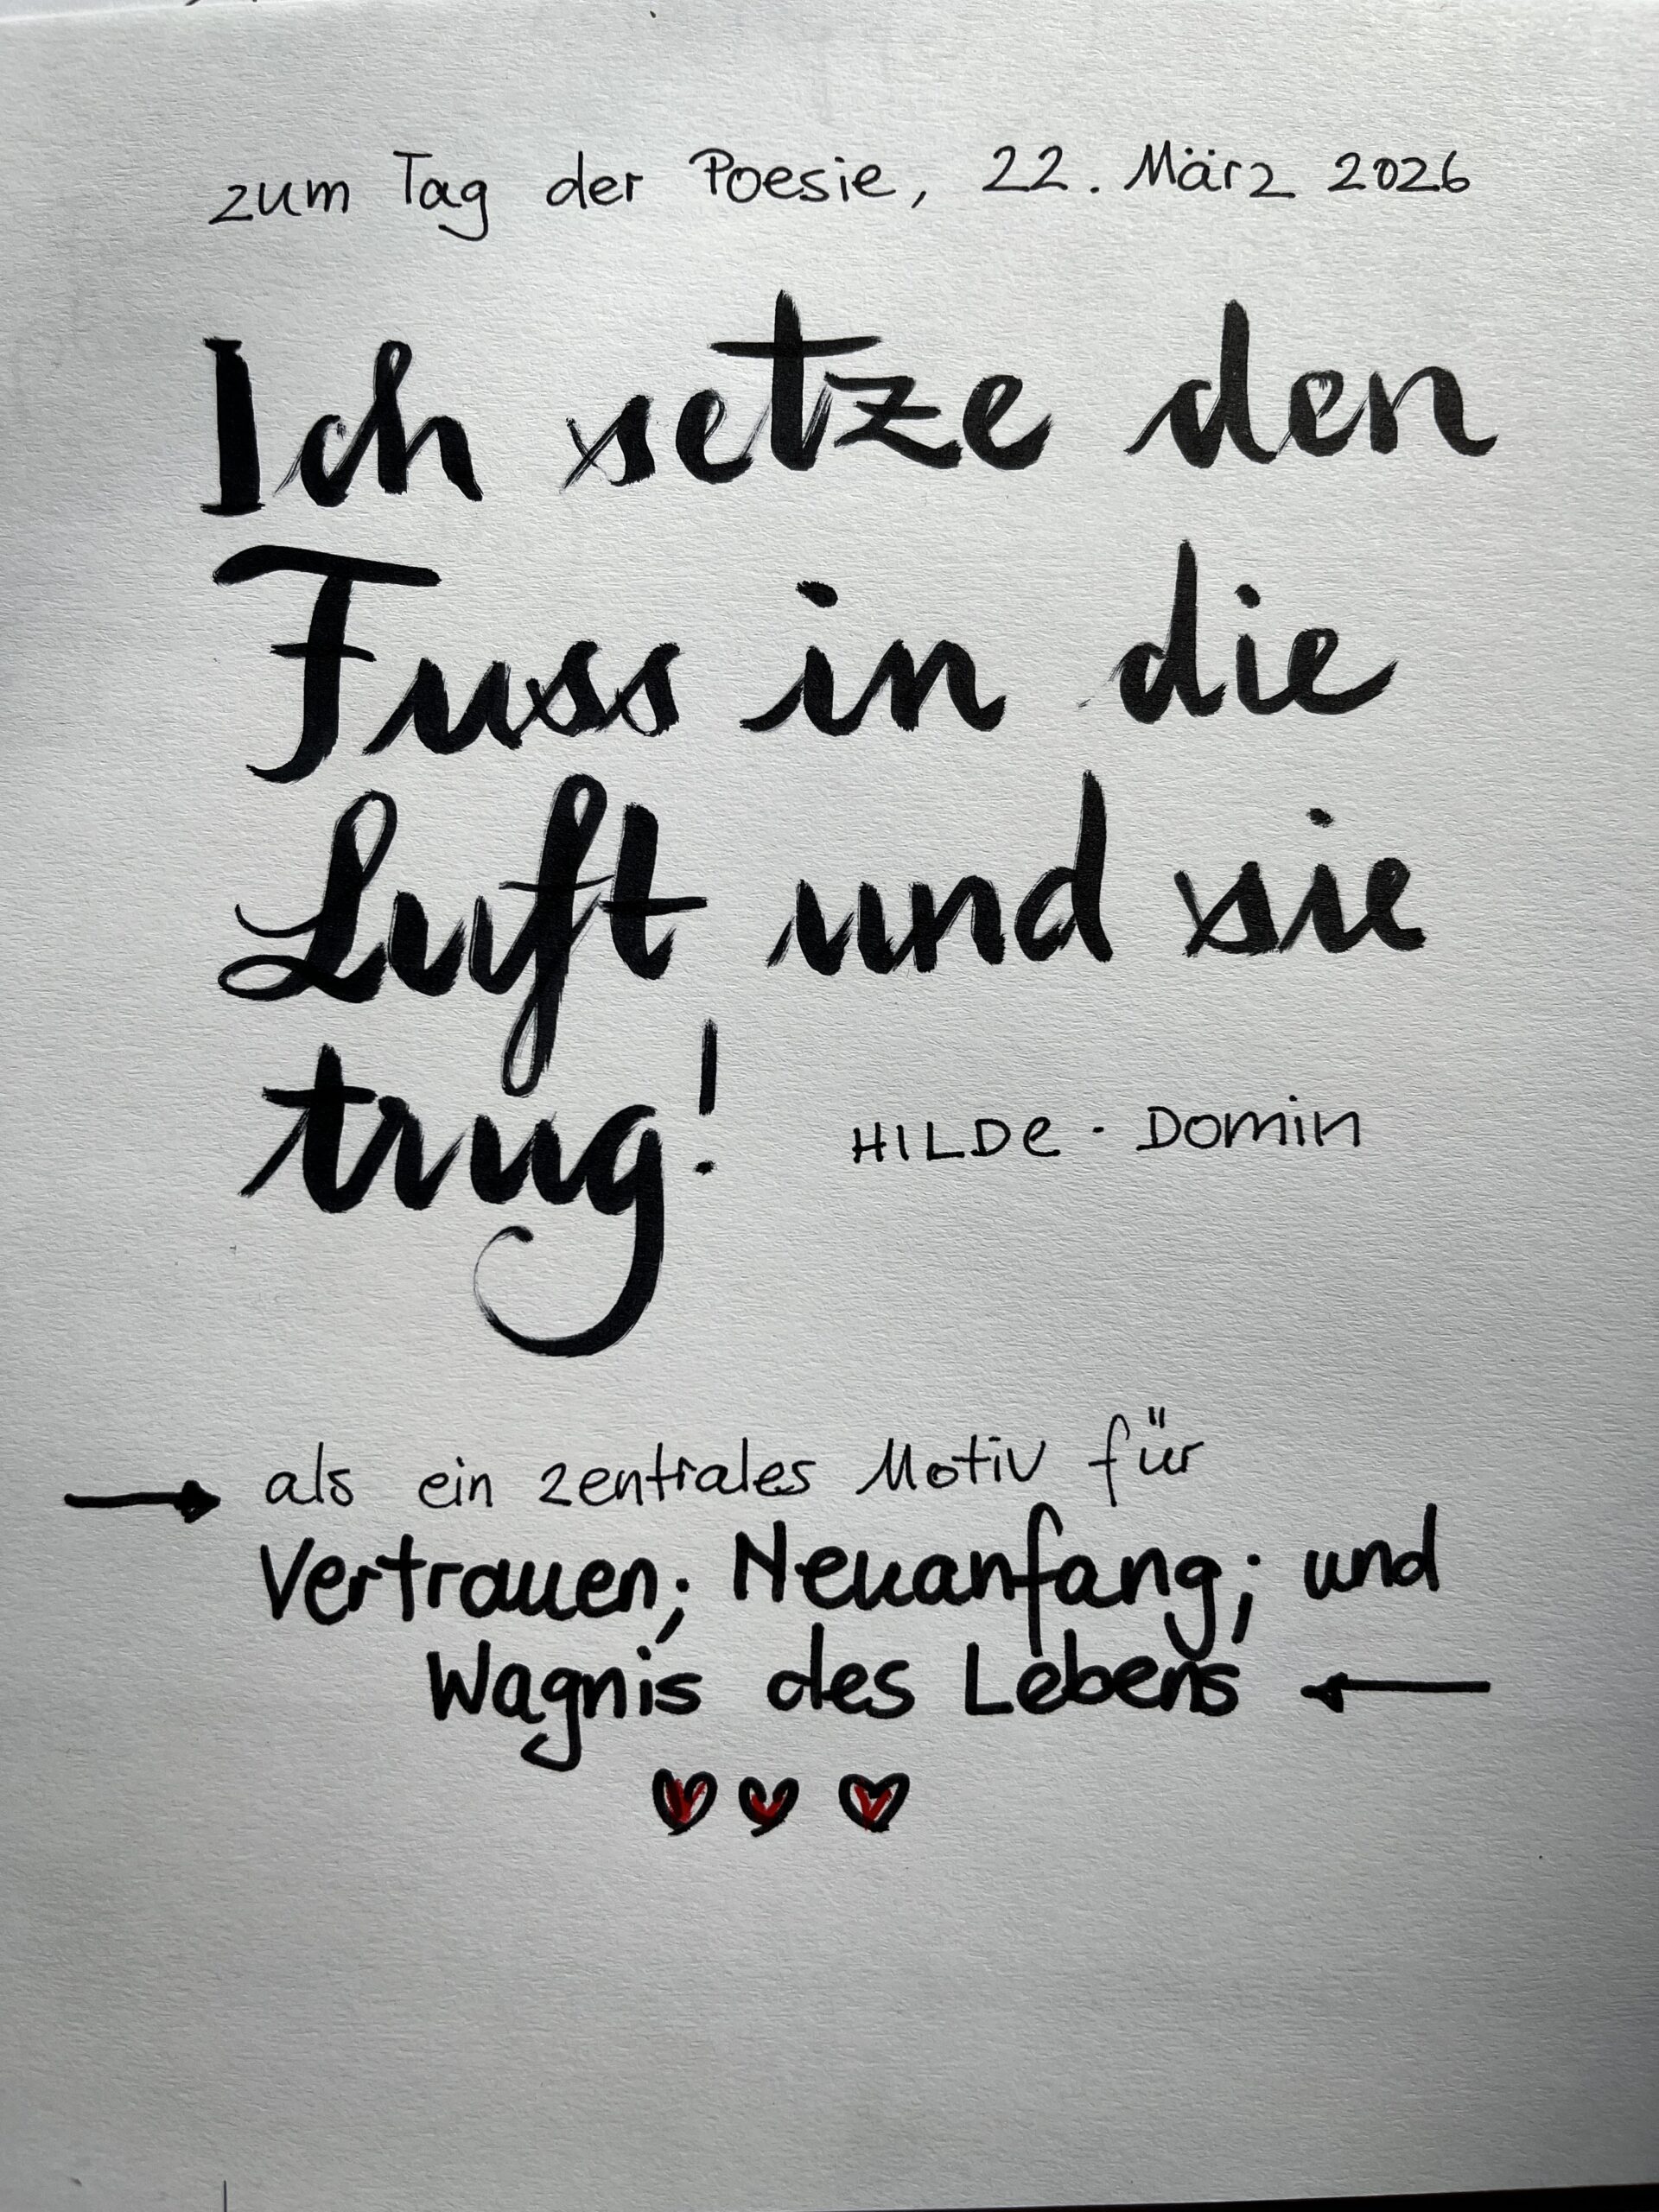 zum Tag der Poesie, 22. März 2026
Ich setze den
Fuss in die
Luft und sie
trug!
HILDe - Domin
als ein zentrales Motiv für
Vertrauen; Neuanfang; und
Wagnis des Lebens